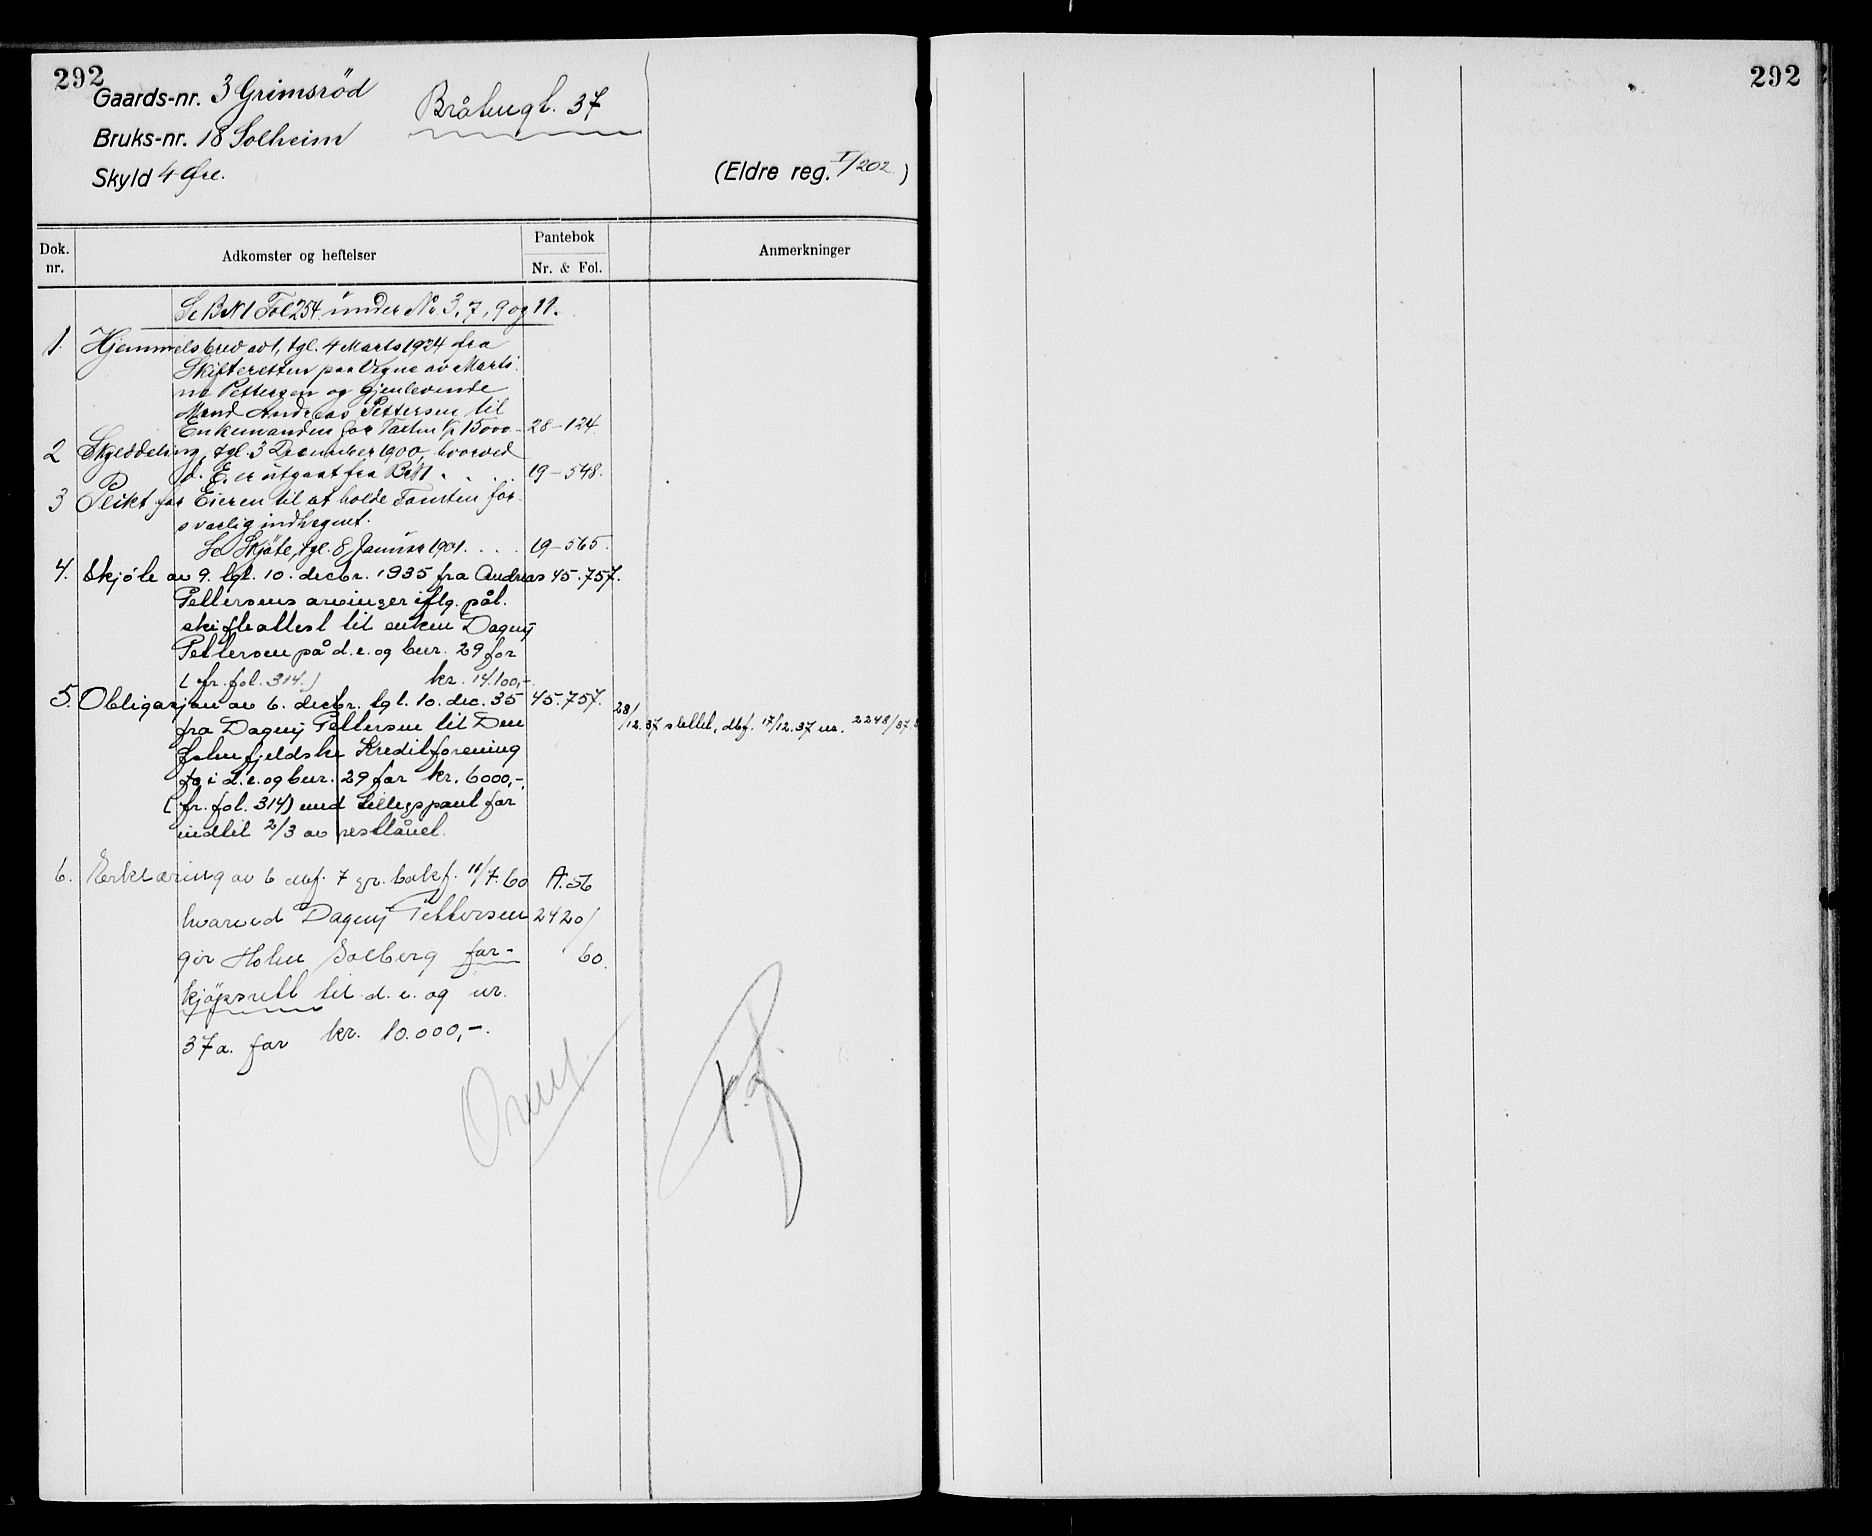 292
Gaards-nr. 3 Grimsröd
Bråtengt. 37
Bruks-nr. 18 Solheim
Skyld 4 Øre.
(Eldre reg. I/202)
Dok. nr.
Adkomster og heftelser
Pantebok
Nr. & Fol.
Anmerkninger
Se BN 1 Fol 254 under No 3, 7, 9 og 11.
1. Hjemmelsbrev av 1, tgl. 4 Marts 1924 fra
Skifteretten paa Vegne av Marti-
ne Pettersen og gjenlevende
Mand Andreas Pettersen til
Enkemanden for Taxten kr 15000 - 28-124.
2 Skylddeling, tgl. 3 December 1900, hvorved
d. E. er utgaat fra BN 1 . . . 19-548.
3 Plikt for Eieren til at holde Tomten for-
svarlig indhegnet.
Se Skjöte, tgl. 8 Januar 1901 . . . . 19-565.
4. Skjöte av 9. tgl. 10. decbr. 1935 fra Andreas 45.757.
Pettersens arvinger iflg. påt.
skifteattest til enken Dagny
Pettersen på d.e. og bnr. 29 for
(fr. fol. 314.) kr. 14.100,-
5. Obligasjon av 6. decbr. tgl. 10. dec. 35 45.757.
fra Dagny Pettersen til Den
såkenfjeldske Kreditforening
for i d.e. og bnr. 29 for kr. 6000,-,
(fr. fol. 314) med tilleggspant for
indtil 2/3 av restlånet.
28/12.37 slettet, dbf. 17/12.37 nr. 2248/37.
6. Erklæring av 6 dbf. 7 gr. bokf. 11/7.60 A.56
hvorved Dagny Pettersen 2420/
gir Holm Solberg for- 60.
kjöpsrett til d.e. og nr.
37a. for kr. 10.000,-.
292